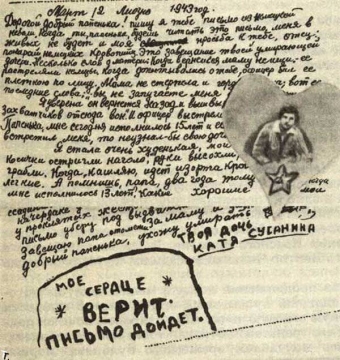 Март, 12, Лиозно, 1943 год.
Дорогой добрый папенька! Пишу я тебе письмо из немецкой
неволи. Когда ты, папенька, будешь читать это письмо, меня в
живых не будет. И моя просьба к тебе, отец:
покарай немецких кровопийц. Это завещание твоей умирающей
дочери. Несколько слов о матери. Когда вернешься, маму не ищи. Ее
расстреляли немцы. Когда допытывались о тебе, офицер бил ее
плеткою по лицу. Мама не стерпела и гордо вот ее
последние слова: "Вы не запугаете меня
Я уверена, он вернется назад и вышвырнет
захватчиков отсюда вон". И офицер выстрелил
Папенька, мне сегодня исполнилось 15 лет и если
встретил меня, то не узнал бы свою дочь
Я стала очень худенькая, мои
косички остригли наголо, руки высохли
грабли. Когда кашляю, идет изо рта кровь
легкие. А помнишь, папа, два года тому
мне исполнилось 13 лет. Какие хорошие
когда
мои
у проклятых
письмо уберу под
Завещаю, папа: отомсти за маму и за
добрый папенька, ухожу умирать.
ТВОЯ ДОЧЬ
КАТЯ СУСАНИНА
МОЕ
СЕРДЦЕ
ВЕРИТ:
ПИСЬМО ДОЙДЕТ.
г.